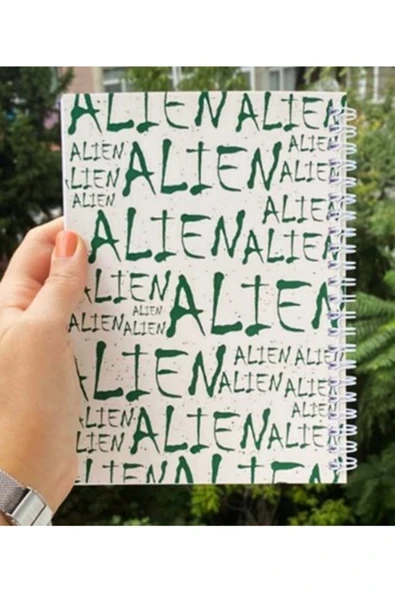 ALIEN ALIEN
ALIEN ALIEN ALIEN
LIEN ALIEN
ALIEN ALIEN
ALIEN ALIEN
ALIEN ALIEN ALIEN
ALIEN ALIEN
ALIEN ALIEN ALIEN
ALIEN ALIEN
ALIEN ALIEN ALIEN
LIEN ALIEN
ALIEN ALIEN